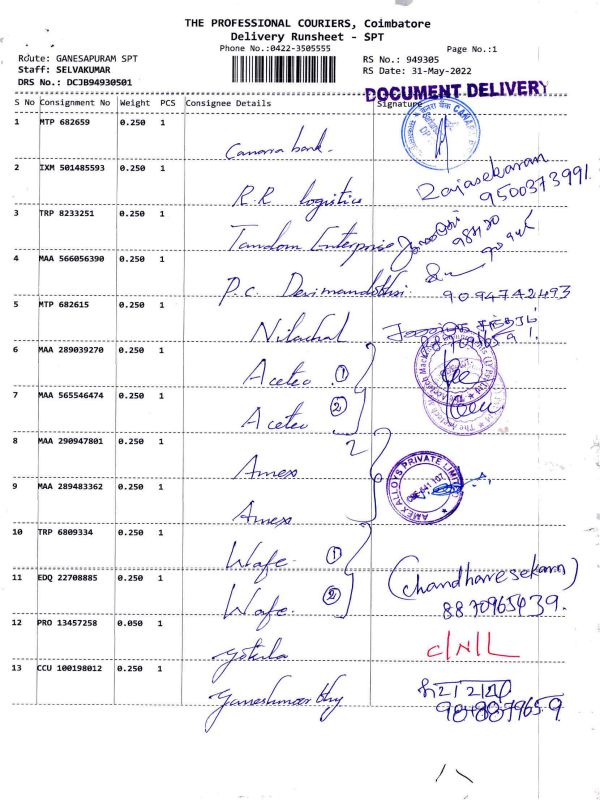 THE PROFESSIONAL COURIERS, Coimbatore
Delivery Runsheet - SPT
Phone No.:0422-3505555
Page No.:1
Route: GANESAPURAM SPT
RS No.: 949305
Staff: SELVAKUMAR
RS Date: 31-May-2022
DRS No.: DCJB94930501
DOCUMENT DELIVERY
S No Consignment No Weight PCS Consignee Details Signature
1 MTP 682659 0.250 1
Canara bank.
2 IXM 501485593 0.250 1
R.R logistics
Rajasekaran
9500373991
3 TRP 8233251 0.250 1
Tandom Enterprise
4 MAA 566056390 0.250 1
P.C.
9094742493
5 MTP 682615 0.250 1
Nilachal
6 MAA 289039270 0.250 1
Aceteo ①
7 MAA 565546474 0.250 1
Aceteo ②
8 MAA 290947801 0.250 1
2
Amex
9 MAA 289483362 0.250 1
Amex
AMEX ALLOYS PRIVATE LIMITED
10 TRP 6809334 0.250 1
Wafe ①
11 EDQ 22708885 0.250 1
Wafe. ②
(Chandharesekaran)
8870965439.
12 PRO 13457258 0.050 1
Gokula
C/N/L
13 CCU 100198012 0.250 1
Ganeshmoorthy